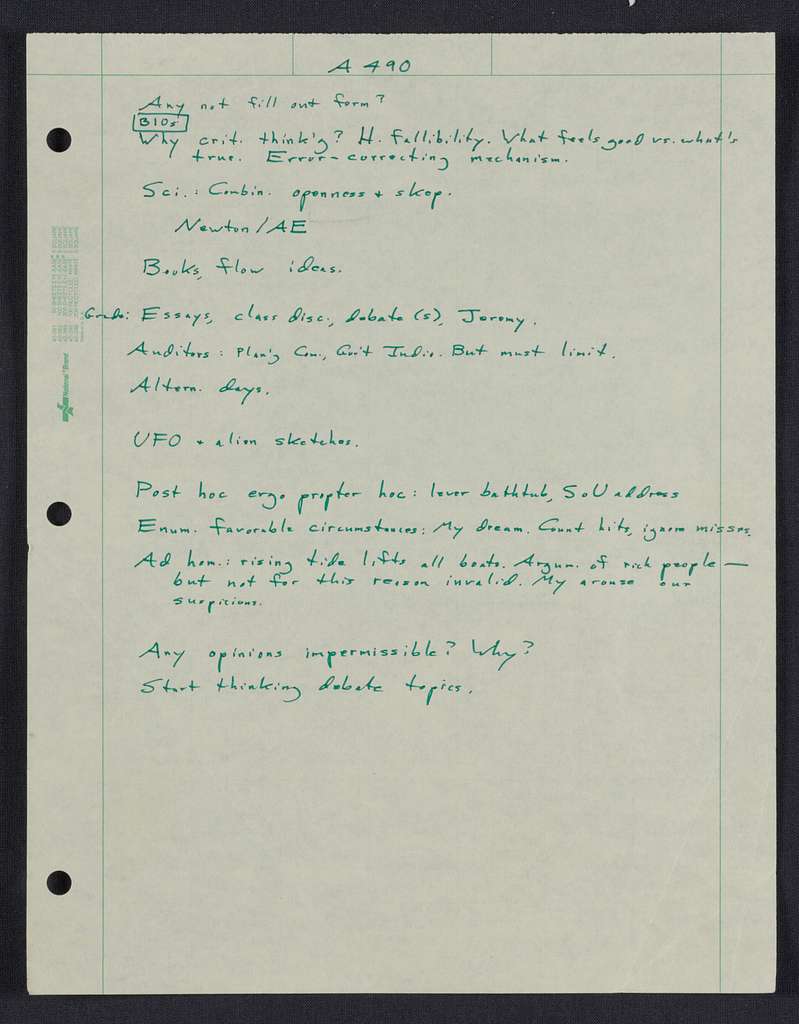 A 490
Any not fill out form?
BIOs
Why crit. think'g? H. fallibility. What feels good vs. what's
true. Error-correcting mechanism.
Sci.: Combin. openness + skep.
Newton/AE
Books, flow ideas.
Grade: Essays, class disc., debate(s), Jeremy.
Auditors: Plan'g Com., Gov't Indiv. But must limit.
Altern. days.
UFO + alien sketches.
Post hoc ergo propter hoc: lever bathtub, SoU address
Enum. favorable circumstances: My dream. Count hits, ignore misses.
Ad hom.: rising tide lifts all boats. Argum. of rich people —
but not for this reason invalid. My arouse our
suspicions.
Any opinions impermissible? Why?
Start thinking debate topics.
National Brand